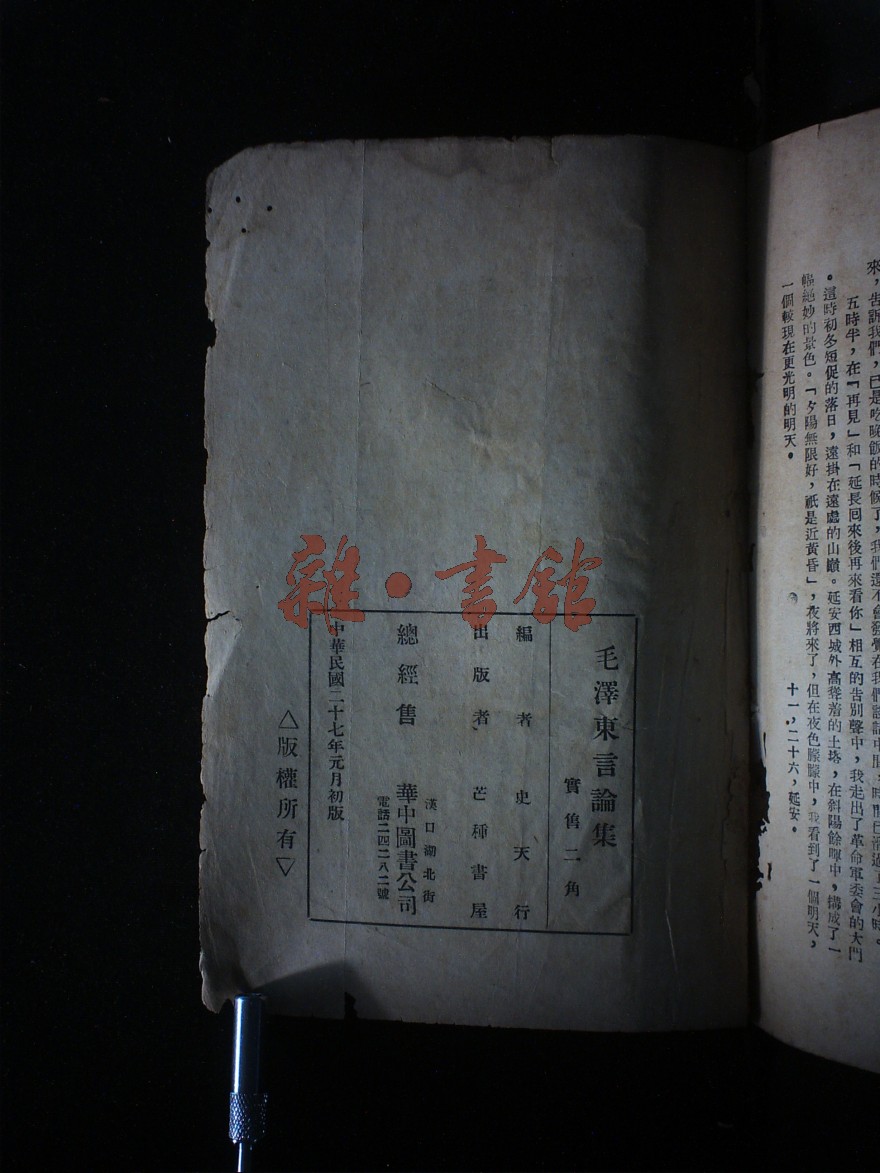 來，告訴我們，已是吃晚飯的時候了，我們還不會發覺在我們談話中間，時間已消過了三小時。
五時半，在「再見」和「延長回來後再來看你」相互的告別聲中，我走出了革命軍委會的大門
。這時初冬短促的落日，遠掛在遠處的山巔。延安西城外高聳着的土塔，在斜陽餘暉中，構成了一
幅絕妙的景色。「夕陽無限好，祇是近黃昏」，夜將來了，但在夜色朦朧中，我看到了一個明天，
一個較現在更光明的明天。
十一，二十六，延安。
毛澤東言論集
實售二角
編者 史天行
出版者 芒種書屋
總經售
漢口湖北街
華中圖書公司
電話二四二八二號
中華民國二十七年元月初版
△版權所有▽
雜·書館